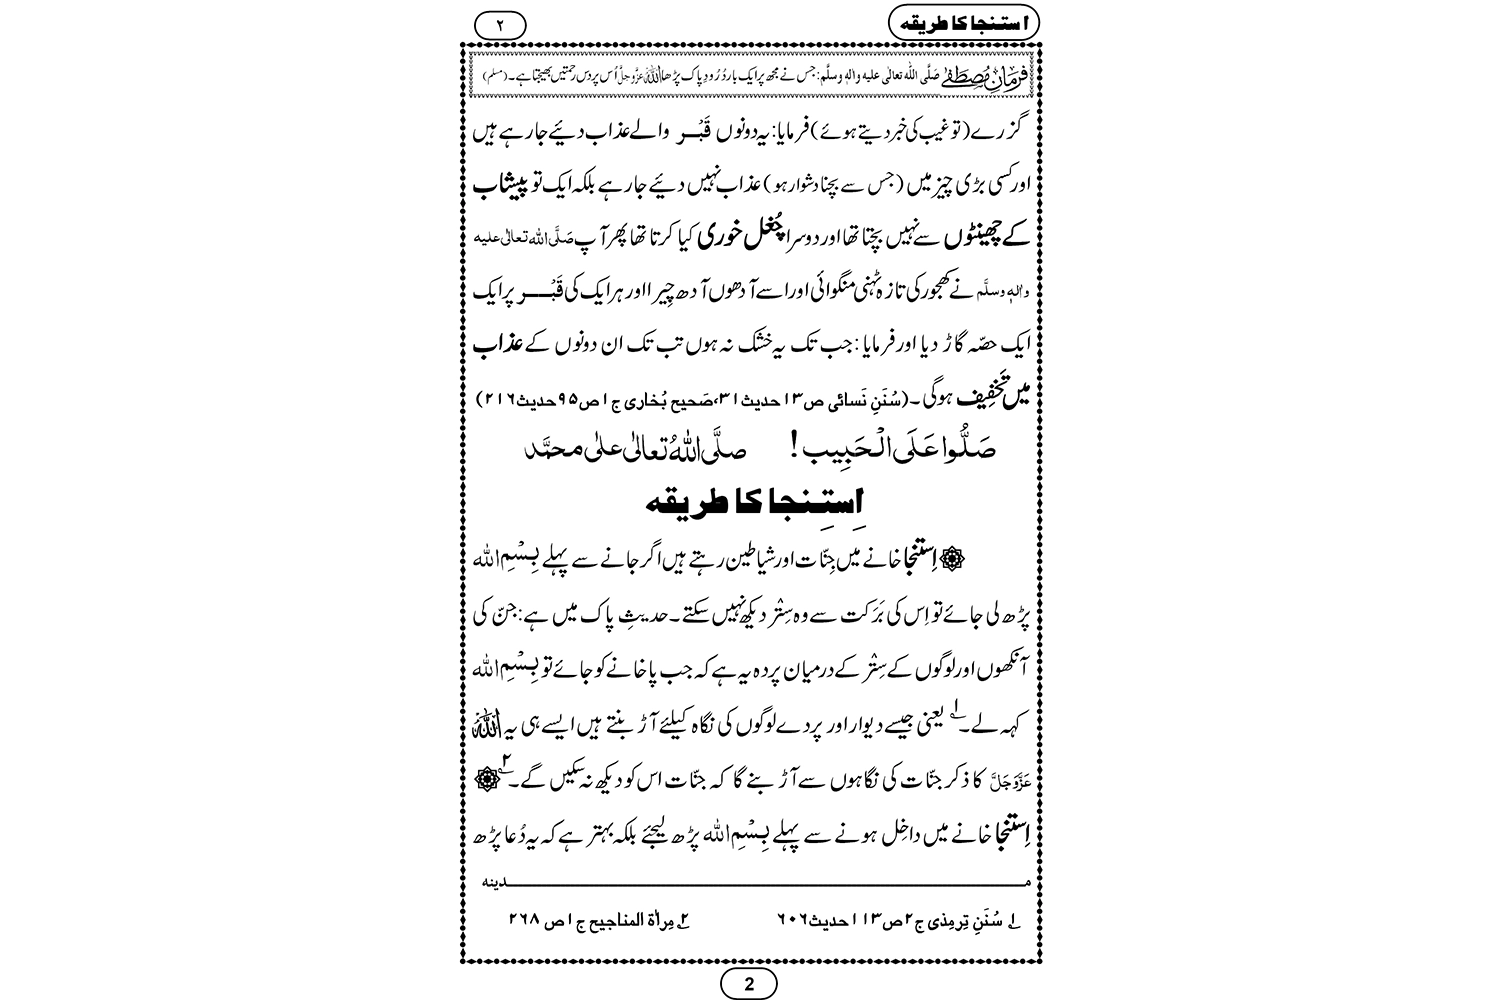 استنجا کا طریقہ
۲
فرمانِ مصطفےٰ صَلَّى اللّٰه تعالٰى عليه واٰلهٖ وسلَّم: جس نے مجھ پر ایک بار دُرُودِ پاک پڑھا اللّٰہ عَزَّوَجَلَّ اُس پر دس رحمتیں بھیجتا ہے۔ (مسلم)
گزرے (تو غیب کی خبر دیتے ہوئے) فرمایا: یہ دونوں قَبْر والے عذاب دئیے جارہے ہیں
اور کسی بڑی چیز میں (جس سے بچنا دشوار ہو) عذاب نہیں دئیے جارہے بلکہ ایک تو پیشاب
کے چھینٹوں سے نہیں بچتا تھا اور دوسرا چُغل خوری کیا کرتا تھا پھر آپ صَلَّى اللّٰه تعالٰى عليه
واٰلهٖ وسلَّم نے کھجور کی تازہ ٹہنی منگوائی اور اسے آدھوں آدھ چِیرا اور ہر ایک کی قَبْر پر ایک
ایک حصّہ گاڑ دیا اور فرمایا: جب تک یہ خشک نہ ہوں تب تک ان دونوں کے عذاب
میں تَخفِیف ہوگی۔ (سُنَنِ نَسائی ص۱۳حدیث۳۱،صَحیح بُخاری ج۱ص۹۵حدیث۲۱۶)
صَلُّوا عَلَى الْحَبِيب! صلَّى اللّٰهُ تعالٰى علٰى محمَّد
اِستِنجا کا طریقہ
اِستنجا خانے میں جِنّات اور شیاطین رہتے ہیں اگر جانے سے پہلے بِسْمِ اللّٰه
پڑھ لی جائے تو اِس کی بَرَکت سے وہ سِتْر دیکھ نہیں سکتے۔ حدیثِ پاک میں ہے: جنّ کی
آنکھوں اور لوگوں کے سِتْر کے درمیان پردہ یہ ہے کہ جب پاخانے کو جائے تو بِسْمِ اللّٰه
کہہ لے۔ ۱؎ یعنی جیسے دیوار اور پردے لوگوں کی نگاہ کیلئے آڑ بنتے ہیں ایسے ہی یہ اللّٰہ
عَزَّوَجَلَّ کا ذکر جنّات کی نگاہوں سے آڑ بنے گا کہ جنّات اس کو دیکھ نہ سکیں گے۔ ۲؎
اِستنجا خانے میں داخِل ہونے سے پہلے بِسْمِ اللّٰه پڑھ لیجئے بلکہ بہتر ہے کہ یہ دُعا پڑھ
مـــــــــــــــدینہ
۱؎ سُنَنِ تِرمِذی ج۲ص۱۱۳حدیث۶۰۶ ۲؎ مِراٰۃ المناجیح ج۱ص ۲۶۸
2